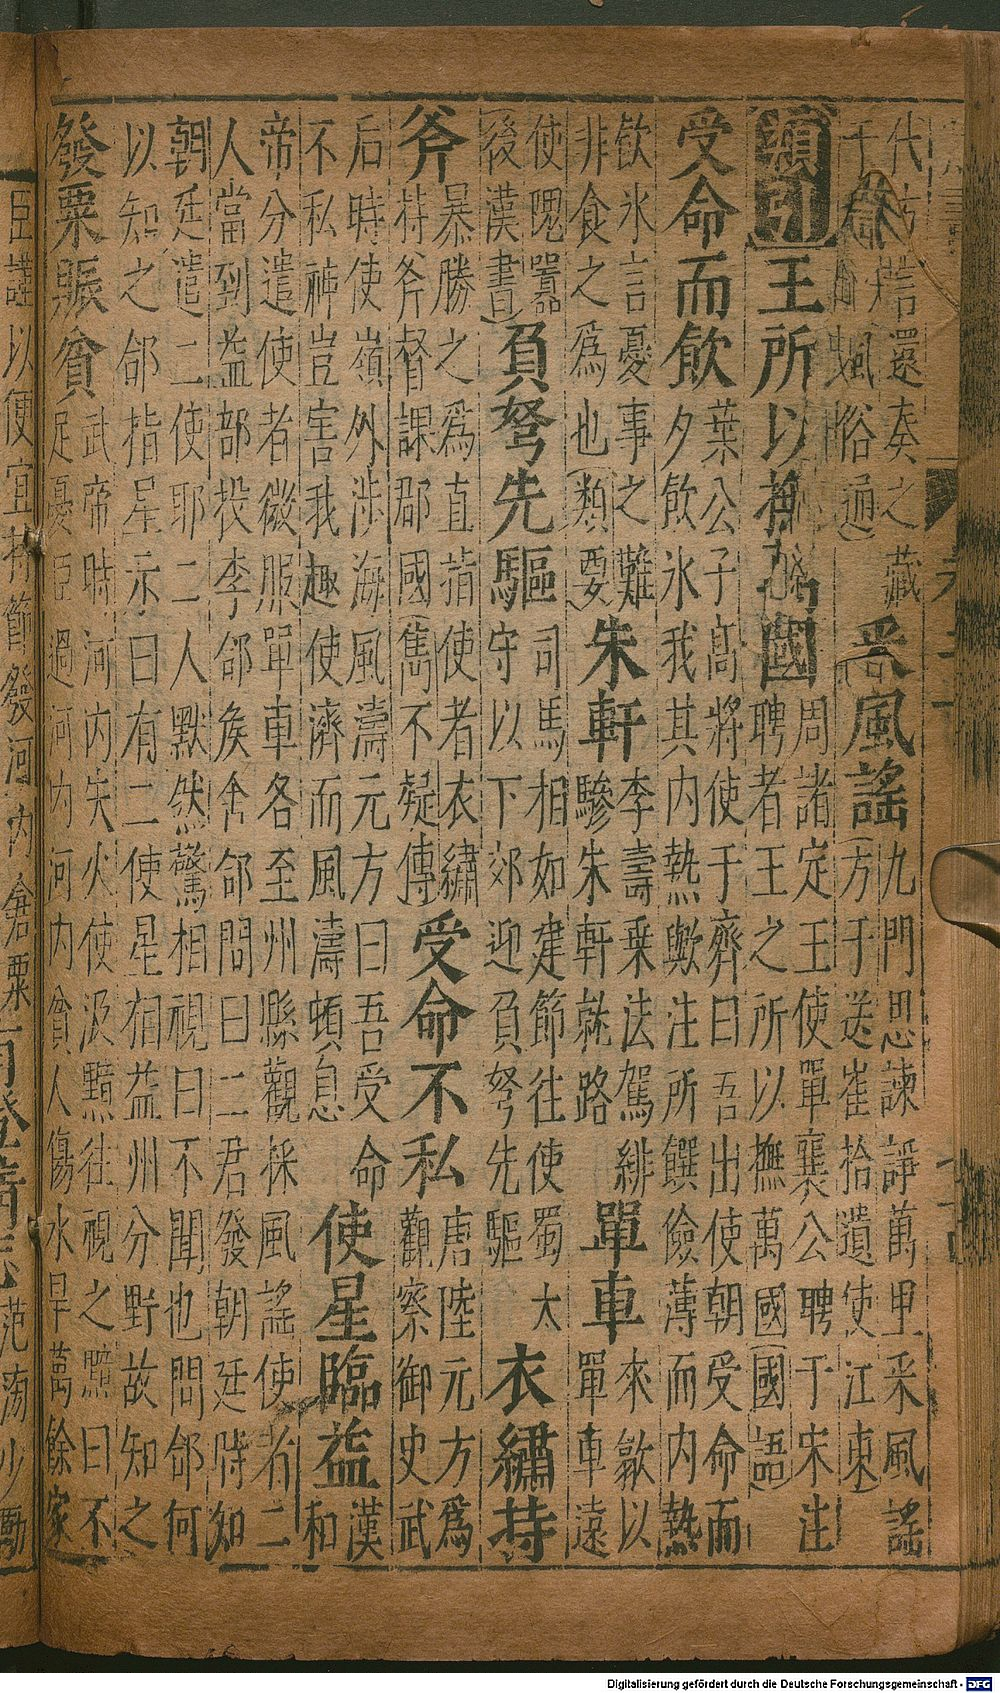 代方言還奏之藏
風俗通
采風謠
九門思諫諍萬里采風謠
方干送崔拾遺使江東
續引
王所以撫萬國
周諸定王使單襄公聘于宋注
聘者王之所以撫萬國國語
受命而飲
葉公子高將使于齊曰吾出使朝受命而
夕飲氷我其内熱歟注所饌儉薄而内熱
飲氷言憂事之難
非食之爲也類要
朱軒
李壽乗法駕緋
驂朱軒就路
單車
來歙以
單車遠
使隗囂
後漢書
負弩先驅
司馬相如建節往使蜀太
守以下郊迎負弩先驅
衣繡持
斧
暴勝之爲直指使者衣繡
持斧督課郡國雋不疑傳
受命不私
唐陸元方爲
觀察御史武
后時使嶺外涉海風濤元方曰吾受命
不私神豈害我趣使濟而風濤頓息
使星臨益
漢
和
帝分遣使者微服單車各至州縣觀採風謠使者二
人當到益部投李郃矦舎郃問曰二君發朝廷時知
朝廷遣二使耶二人黙然驚相視曰不聞也問郃何
以知之郃指星示曰有二使星宿益州分野故知之
發粟賑貧
武帝時河内失火使汲黯往視之黯曰不
足憂臣過河内河内貧人傷水旱萬餘家
臣謹以便宜持節發河内倉粟
范滂少勵
Digitalisierung gefördert durch die Deutsche Forschungsgemeinschaft - DFG